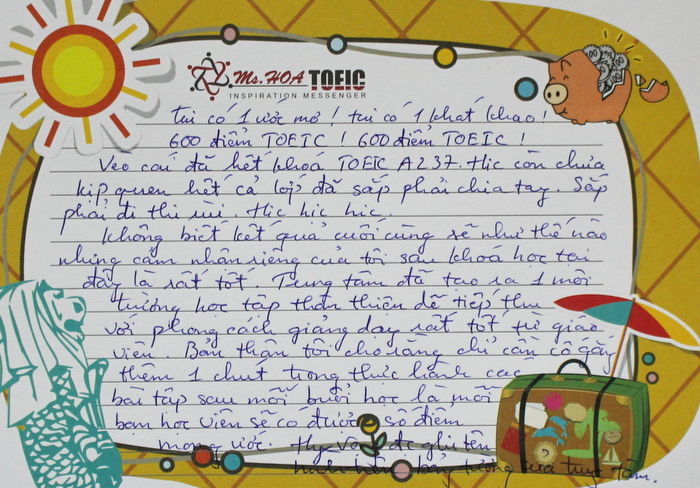 Ms. HOA TOEIC
INSPIRATION MESSENGER
tui có 1 ước mơ! tui có 1 khát khao!
600 điểm TOEIC! 600 điểm TOEIC!
Vèo cái đã hết khoá TOEIC A237. Hic còn chưa
kịp quen hết cả lớp đã sắp phải chia tay. Sắp
phải đi thi rùi. Hic hic hic.
Không biết kết quả cuối cùng sẽ như thế nào
nhưng cảm nhận riêng của tôi sau khoá học tại
đây là rất tốt. Trung tâm đã tạo ra 1 môi
trường học tập thân thiện dễ tiếp thu
với phong cách giảng dạy rất tốt từ giáo
viên. Bản thân tôi cho rằng chỉ cần cố gắng
thêm 1 chút trong thực hành các
bài tập sau mỗi buổi học là mỗi
bạn học viên sẽ có được số điểm
mong ước. Hy vọng đc ghi tên
mình trên bảng tường của trung tâm.